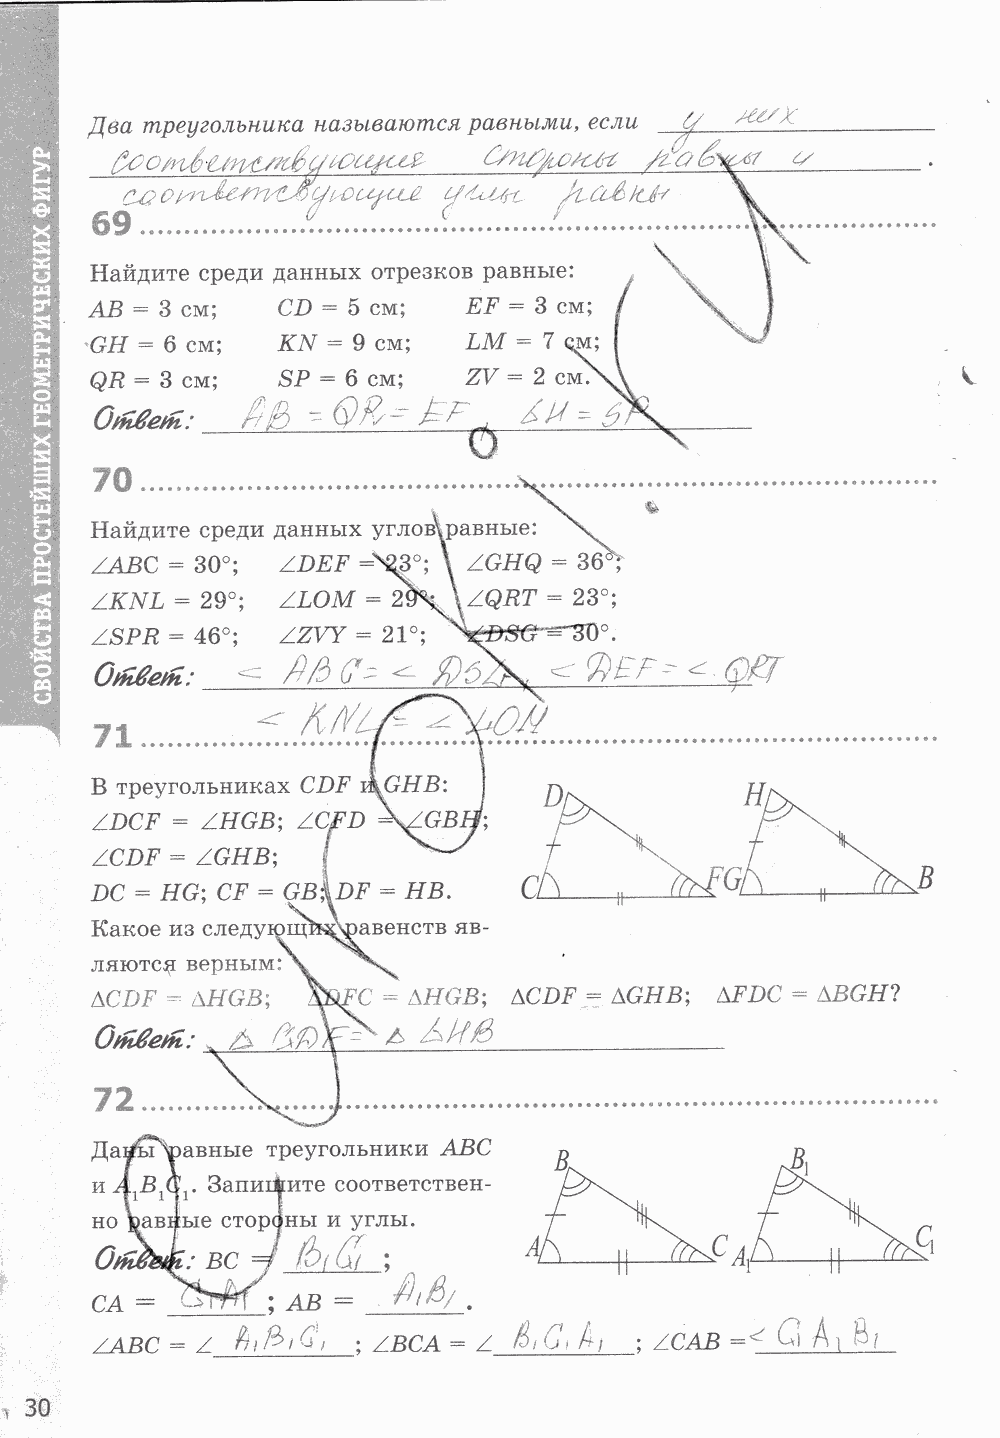 СВОЙСТВА ПРОСТЕЙШИХ ГЕОМЕТРИЧЕСКИХ ФИГУР
Два треугольника называются равными, если у них
соответствующие стороны равны и .
соответсвующие углы равны
69
Найдите среди данных отрезков равные:
AB = 3 см; CD = 5 см; EF = 3 см;
GH = 6 см; KN = 9 см; LM = 7 см;
QR = 3 см; SP = 6 см; ZV = 2 см.
Ответ: AB = QR = EF, GH = SP
70
Найдите среди данных углов равные:
∠ABC = 30°; ∠DEF = 23°; ∠GHQ = 36°;
∠KNL = 29°; ∠LOM = 29°; ∠QRT = 23°;
∠SPR = 46°; ∠ZVY = 21°; ∠DSG = 30°.
Ответ: < ABC = < DSG, < DEF = < QRT
< KNL = < LOM
71
В треугольниках CDF и GHB:
∠DCF = ∠HGB; ∠CFD = ∠GBH;
∠CDF = ∠GHB;
DC = HG; CF = GB; DF = HB.
Какое из следующих равенств яв-
ляются верным:
∆CDF = ∆HGB; ∆DFC = ∆HGB; ∆CDF = ∆GHB; ∆FDC = ∆BGH?
Ответ: ∆ CDF = ∆ GHB
D H
C F G B
72
Даны равные треугольники ABC
и A₁B₁C₁. Запишите соответствен-
но равные стороны и углы.
Ответ: BC = B₁C₁ ;
CA = C₁A₁ ; AB = A₁B₁ .
∠ABC = ∠ A₁B₁C₁ ; ∠BCA = ∠ B₁C₁A₁ ; ∠CAB = < C₁A₁B₁
B B₁
A C A₁ C₁
30